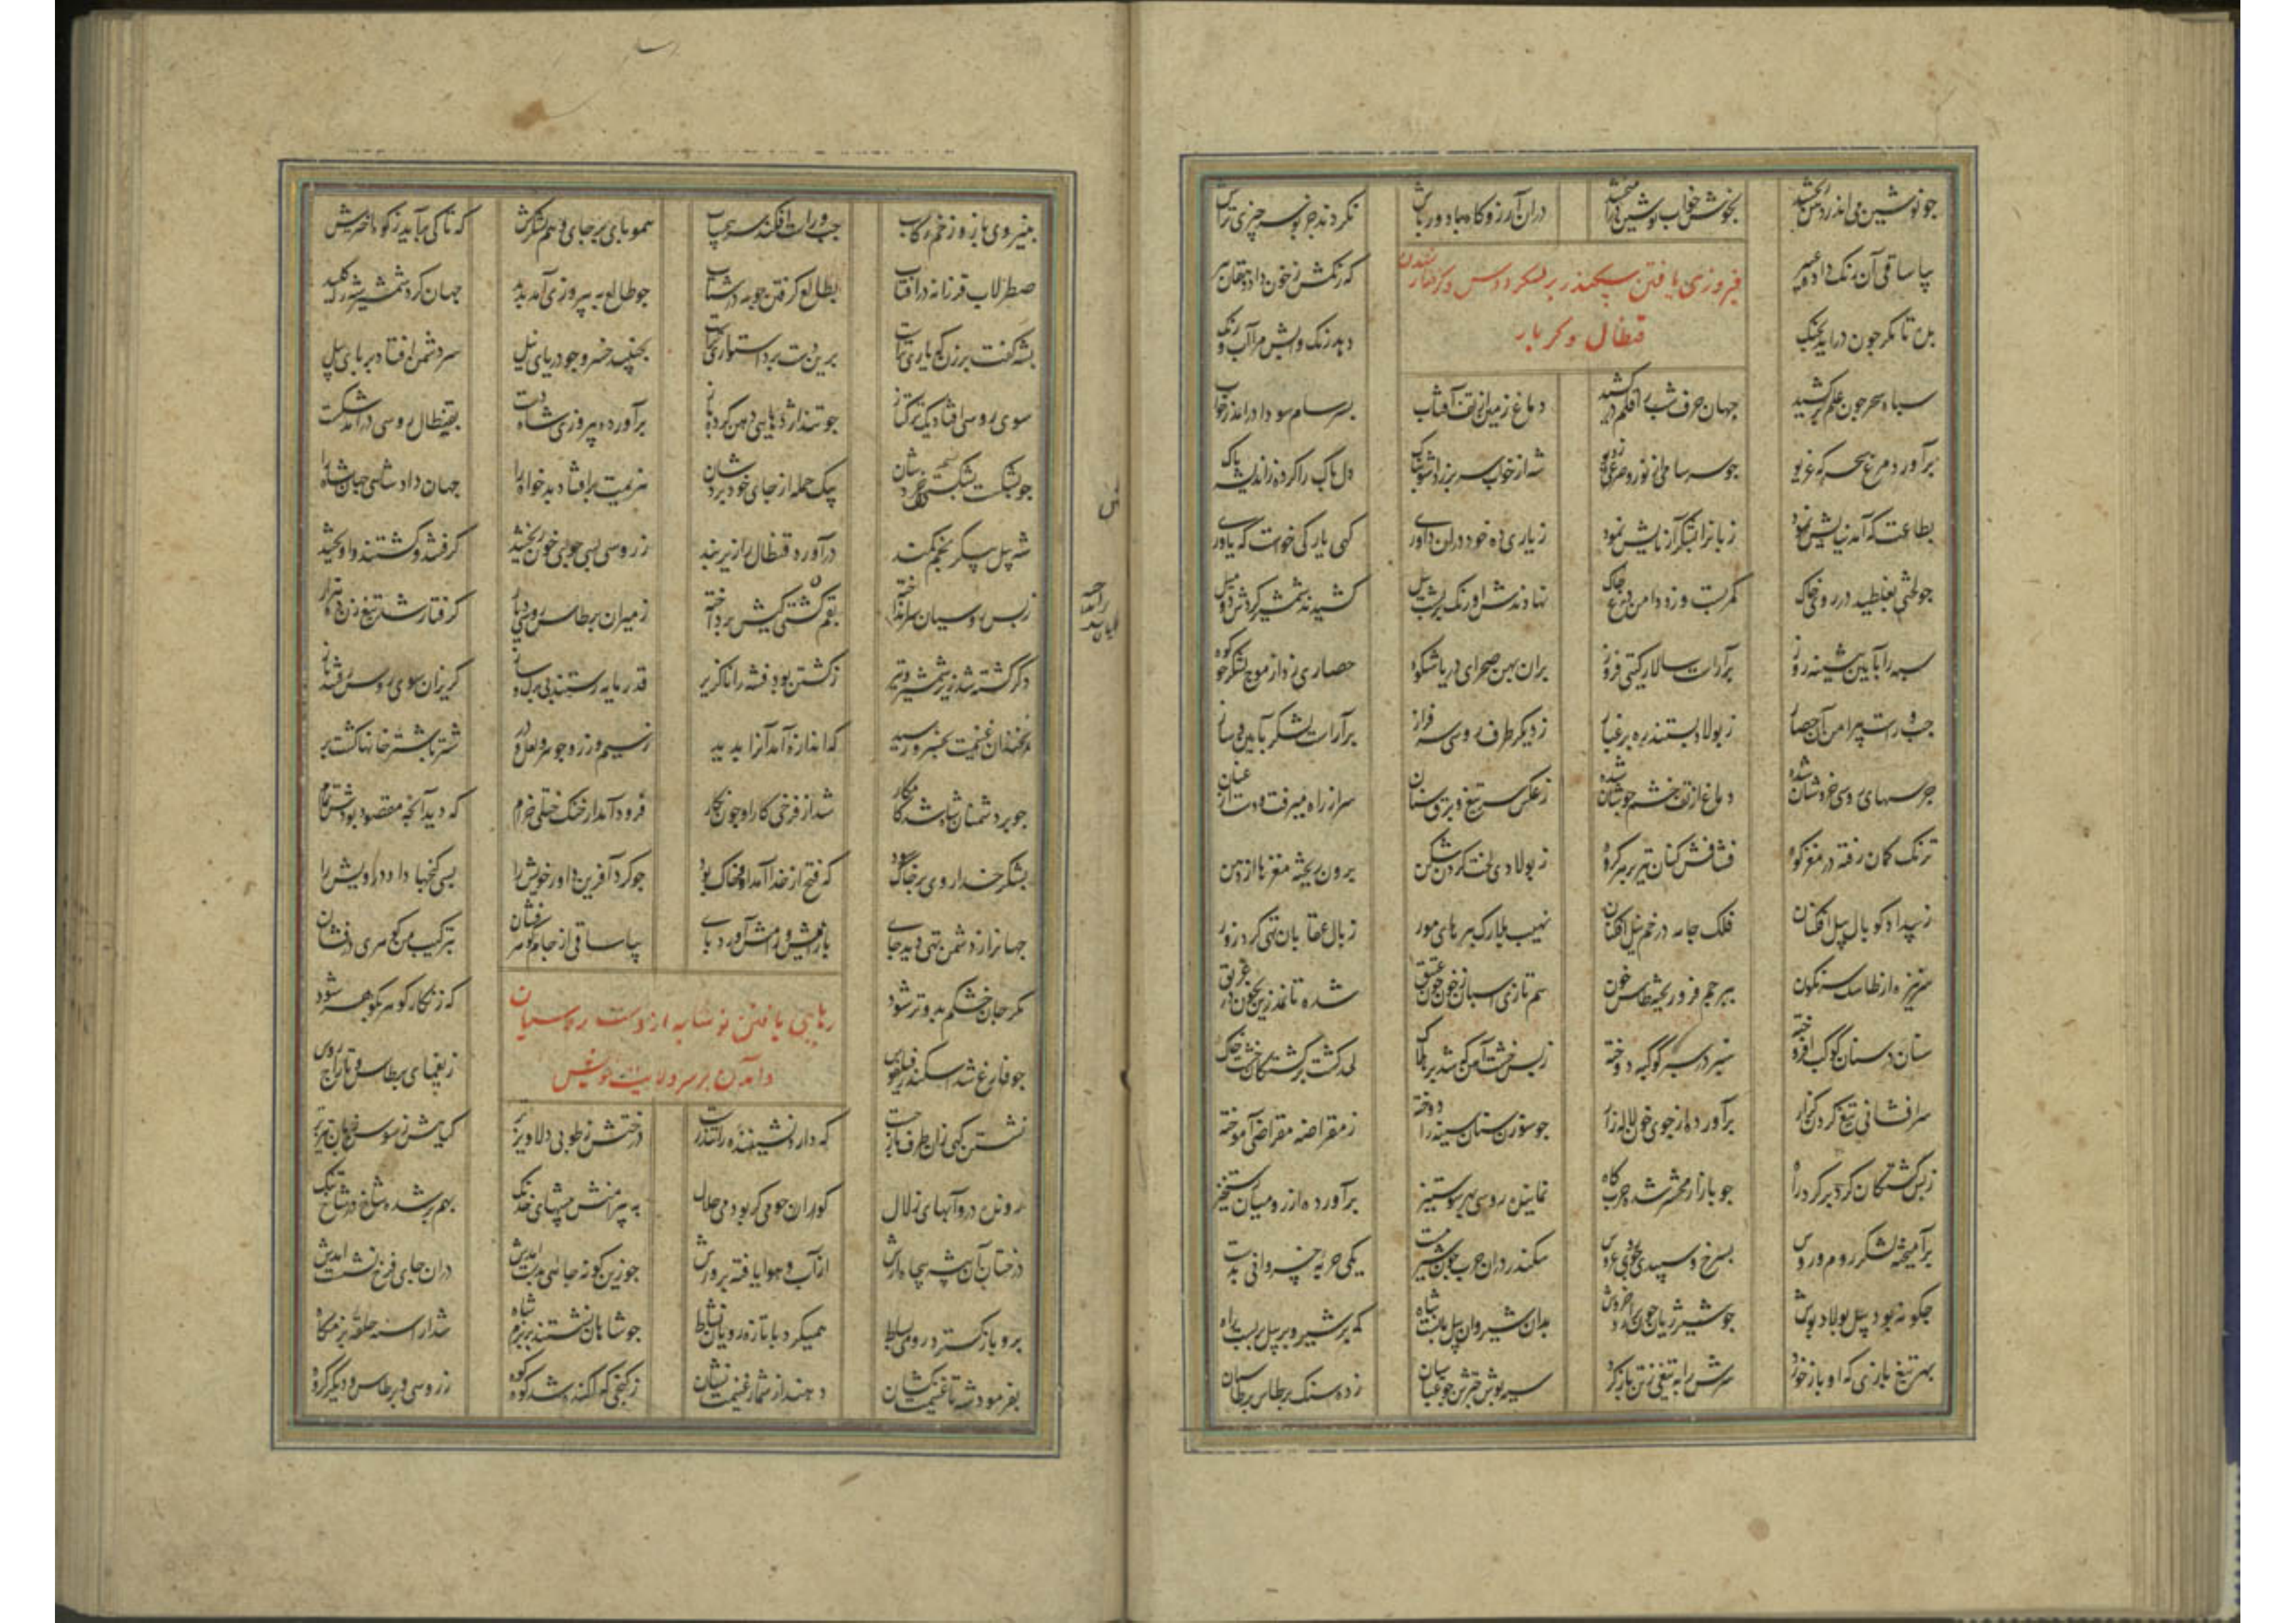 چو نوشین می اندر دهن ریختند بخوش خواب نوشین دران آرزوگاه با دورباش نکردند جز بوسه چیزی تراش
بیا ساقی آن رنگ داده عبیر که رنگش ز خون داد دهقان پیر
فیروزی یافتن سکندر بر لشکر روس و گرفتار شدن
قنطال و کر بار
بده تا مگر چون درآید بچنگ دهد رنگ و آبش مرا آب و رنگ
سپاه سحر چون علم برکشید جهان حرف شب را قلم درکشید دماغ زمین از تف آفتاب بسرسام سودا درآمد ز خواب
برآورد مرغ سحرگه غریو چو سرسامی از نور و صرعی ز دیو شه از خواب سر برزد آشوبناک دل پاک را کرده ز اندیشه پاک
بطاعتگه آمد نیایش نمود زبانرا بشکر آزمایش نمود ز یاری ده خود دران داوری کهی یارکی خواست که یاوری
چو لختی بغلطید در روی خاک کمر بست و زد دامن درع چاک نهادندش اورنک بر پشت پیل کشیدند شمشیر کردش دو میل
سپه را بآیین پیشینه روز برآراست سالار کیتی فروز بران پهن صحرای دریا شکوه حصاری زد از موج لشکر چو کوه
چپ و راست پیرامن آن حصار ز پولاد بستند ره بر غبار ز دیکر طرف روسی سرفراز برآراست لشکر بآیین و ساز
جرسهای روسی خروشان شده دماغ از تف خشم جوشان شده ز عکس سر تیغ و برق سنان سر از راه میرفت و دست از عنان
ترنک کمان رفته در مغز کوه فشافش کنان تیر بر هر کروه ز پولادی لخت کردن شکن برون ریخته مغزها از دهن
ز بیداد کوپال پیل افکنان فلک جامه در خم نیل افکنان نهیب بلارک بپرهای مور ز بال عقابان تهی کرد زور
سر نیزه از طاسک سرنکون بپرچم فرو ریخته طاس خون سم تازی اسپان ز خون چون عقیق شده تا نمدزین بخون در غریق
سنان در سنان کوکب افروخته سپر در سپر کوکبه دوخته ز بس خشت آهن که شد بر هلاک لحد کشت بر کشتکان خشت خاک
سرافشانی تیغ کردن کذار برآورده از جوی خون لاله زار چو سوزن سنان سینه را دوخته ز مقراضه مقراضی آموخته
ز بس کشتکان کرد بر کرد راه چو بازار محشر شد حربکاه نماینده روسی بهر سو ستیز برآورده از رومیان رستخیز
برآمیخته لشکر روم و روس بسرخ و سپیدی چو روی عروس سکندر دران حرب چون شیر مست یکی حربه خسروانی بدست
چکونه بود پیل پولاد پوش چو شیر ژیان چون خروش بدان شیروان پیل شاه که بر شیر و بر پیل بربست راه
بهر تیغ بازی که او باز خورد سرش را بتیغی ز تن باز کرد سیه پوش چترش چو عباسیان زده سنک بر طاس برطاسیان
بنیروی بازو و زخم رکاب چپ و راست افکند سر همو پای بر جای و هم لشکرش که تا کی بآید ز کوه اخترش
صطرلاب فرزانه در آفتاب بطالع کرفتن چو مه در شتاب چو طالع به پیروزی آمد پدید جهان کرد شمشیر شه را کلید
بشه کفت برزن که یاری تراست برین دست برد استواری تراست بجنبید خسرو چو دریای نیل سر دشمن افتاد در پای پیل
سوی روسی افتاد یک ترکتاز چو تند اژدهایی دهن کرده باز برآورد پیروزی شاه دست بقنطال روسی درآمد شکست
چو بشکست بیک حمله از جای خود بردشان هزیمت برافتاد بدخواه را جهان داد شاهی جهان شاه را
شه پیل پیکر بخم کمند درآورد قنطال را زیر بند ز روسی بسی جوی خون ریختند کرفتند و کشتند و آویختند
ز بس روسیان سر انداخته بقم کشتی کیش پرداخته ز میران برطاس روسی دیار کرفتار شد تیغ زن ده هزار
دکر کشته شد زیر شمشیر و تیر ز کشتن بود فتنه را ناکزیر قدر مایه رستند بی برک و ساز کریزان سوی روس رفتند باز
نچندان غنیمت بخسرو رسید که اندازه آمد آنرا پدید ز سیم و زر و جوهر و لعل و در شتر با شتر خانها کشت پر
چو بر دشمنان شاه شد کامکار شد از فرخی کار او چون نکار فرود آمد از خنک ختلی خرام که دید آنچه مقصود بودش تمام
بشکر خدا روی بر خاک سود که فتح از خدا آمد او خاک بود چو کرد آفرین داور خویش را بسی کنجها داد درویش را
جهانرا ز دشمن تهی دید جای بآرامش و رامش آورد رای بیا ساقی از جام کوهر فشان بترکیب من کوهری درفشان
مکر جان خشکم بدو تر شود که زنکار کوهر بکوهر شود
رهایی یافتن نوشابه از دست روسیان
و آمدن بر سر ولایت خویش
چو فارغ شد اسکندر فیلقوس ز یغمای برطاس و تاراج روس
نشستن کهی زان طرف باز جست که دارد نشیننده را تندرست درختش ز طوبی دلاویزتر کیاهش ز سوسن زبان تیزتر
رونده درو آبهای زلال کوران جومی کر بود می حلال به پیرامنش بیشهای خدنک بهم برشده شاخ در شاخ تنک
درختان از آب و هوا یافته پرورش چو زین کونه جائی بدست آمدش دران جای فرخ نشست آمدش
برو باز کسترد رومی بساط همیکرد با تازه رویان نشاط چو شاهان نشستند در بزم شاه شد آراسته حلقه بزمکاه
بفرمود شه تا غنیمت کشان دهند از شمار غنیمت نشان ز کنجی که آکنده شد کوه کوه ز روسی و برطاس و دیکر کروه